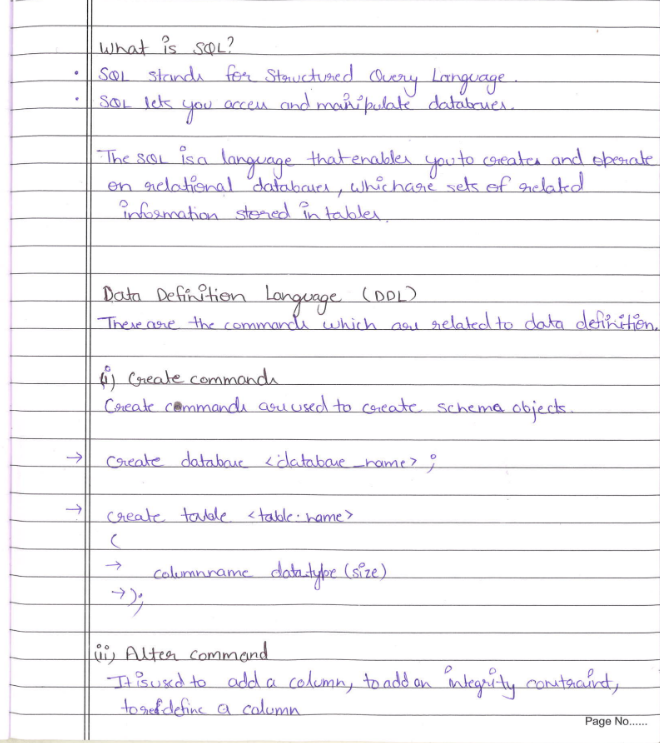 What is SQL?
• SQL stands for Structured Query Language.
• SQL lets you access and manipulate databases.
The SQL is a language that enables you to creates and operate
on relational databases, which are sets of related
information stored in tables.
Data Definition Language (DDL)
These are the commands which are related to data definition.
(i) Create commands
Create commands are used to create schema objects.
→ create database <database_name> ;
→ create table <table-name>
(
→ columnname datatype (size)
→ );
(ii) Alter command
It is used to add a column, to add an integrity constraint,
to redefine a column
Page No......